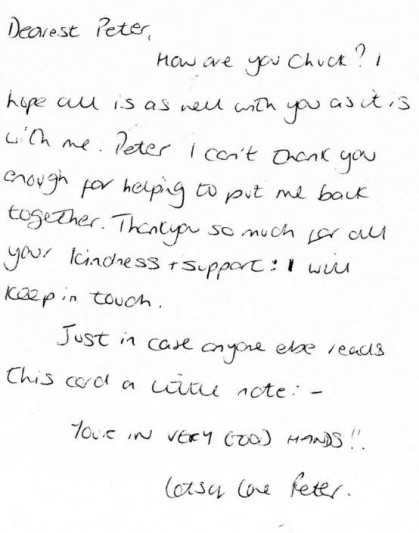 Dearest Peter,
How are you Chuck? I
hope all is as well with you as it is
with me. Peter I can't thank you
enough for helping to put me back
together. Thankyou so much for all
your kindness + support! I will
keep in touch.
Just in case anyone else reads
this card a little note: -
YOU'RE IN VERY GOOD HANDS!!
Lotsa Love Peter.